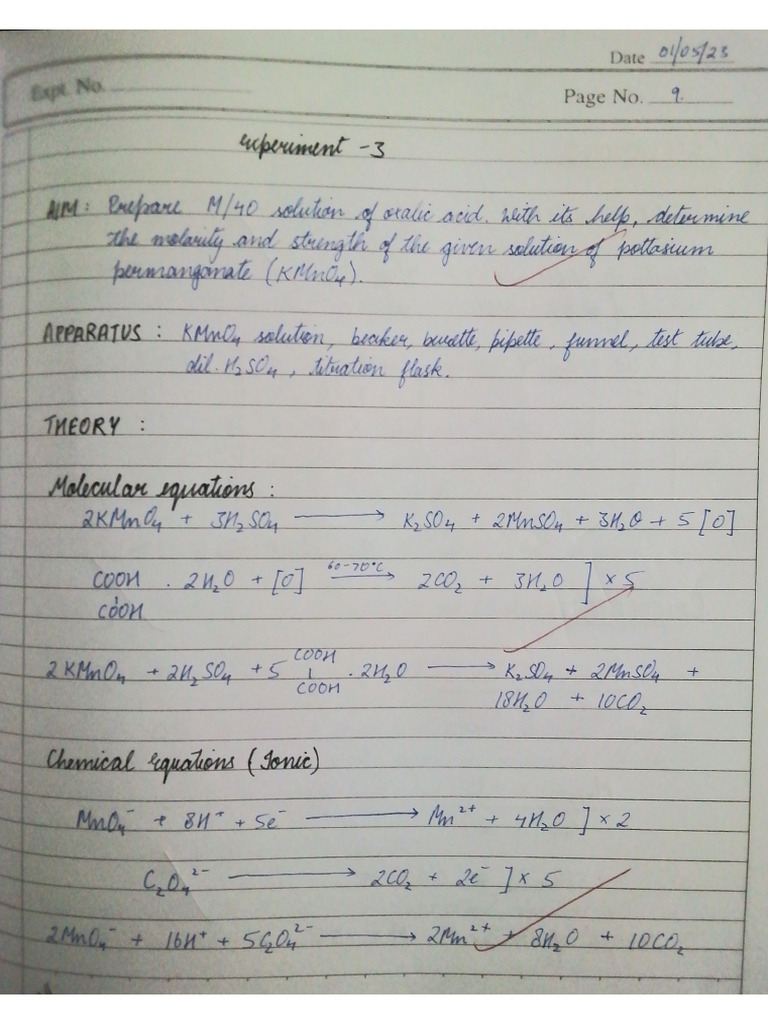 Date 01/05/23
Expt. No.
Page No. 9.
Experiment - 3
AIM : Prepare M/40 solution of oxalic acid. With its help, determine
the molarity and strength of the given solution of pottasium
permanganate (KMnO₄).
APPARATUS : KMnO₄ solution, beaker, burette, pipette, funnel, test tube,
dil. H₂SO₄, titration flask.
THEORY :
Molecular equations :
2KMnO₄ + 3H₂SO₄ ⟶ K₂SO₄ + 2MnSO₄ + 3H₂O + 5 [O]
60-70°C
COOH . 2H₂O + [O] ⟶ 2CO₂ + 3H₂O ] × 5
COOH
COOH
2 KMnO₄ + 2H₂SO₄ + 5 | . 2H₂O ⟶ K₂SO₄ + 2MnSO₄ +
COOH
18H₂O + 10CO₂
Chemical equations (Ionic)
MnO₄⁻ + 8H⁺ + 5e⁻ ⟶ Mn²⁺ + 4H₂O ] × 2
C₂O₄²⁻ ⟶ 2CO₂ + 2e⁻ ] × 5
2MnO₄⁻ + 16H⁺ + 5C₂O₄²⁻ ⟶ 2Mn²⁺ + 8H₂O + 10CO₂